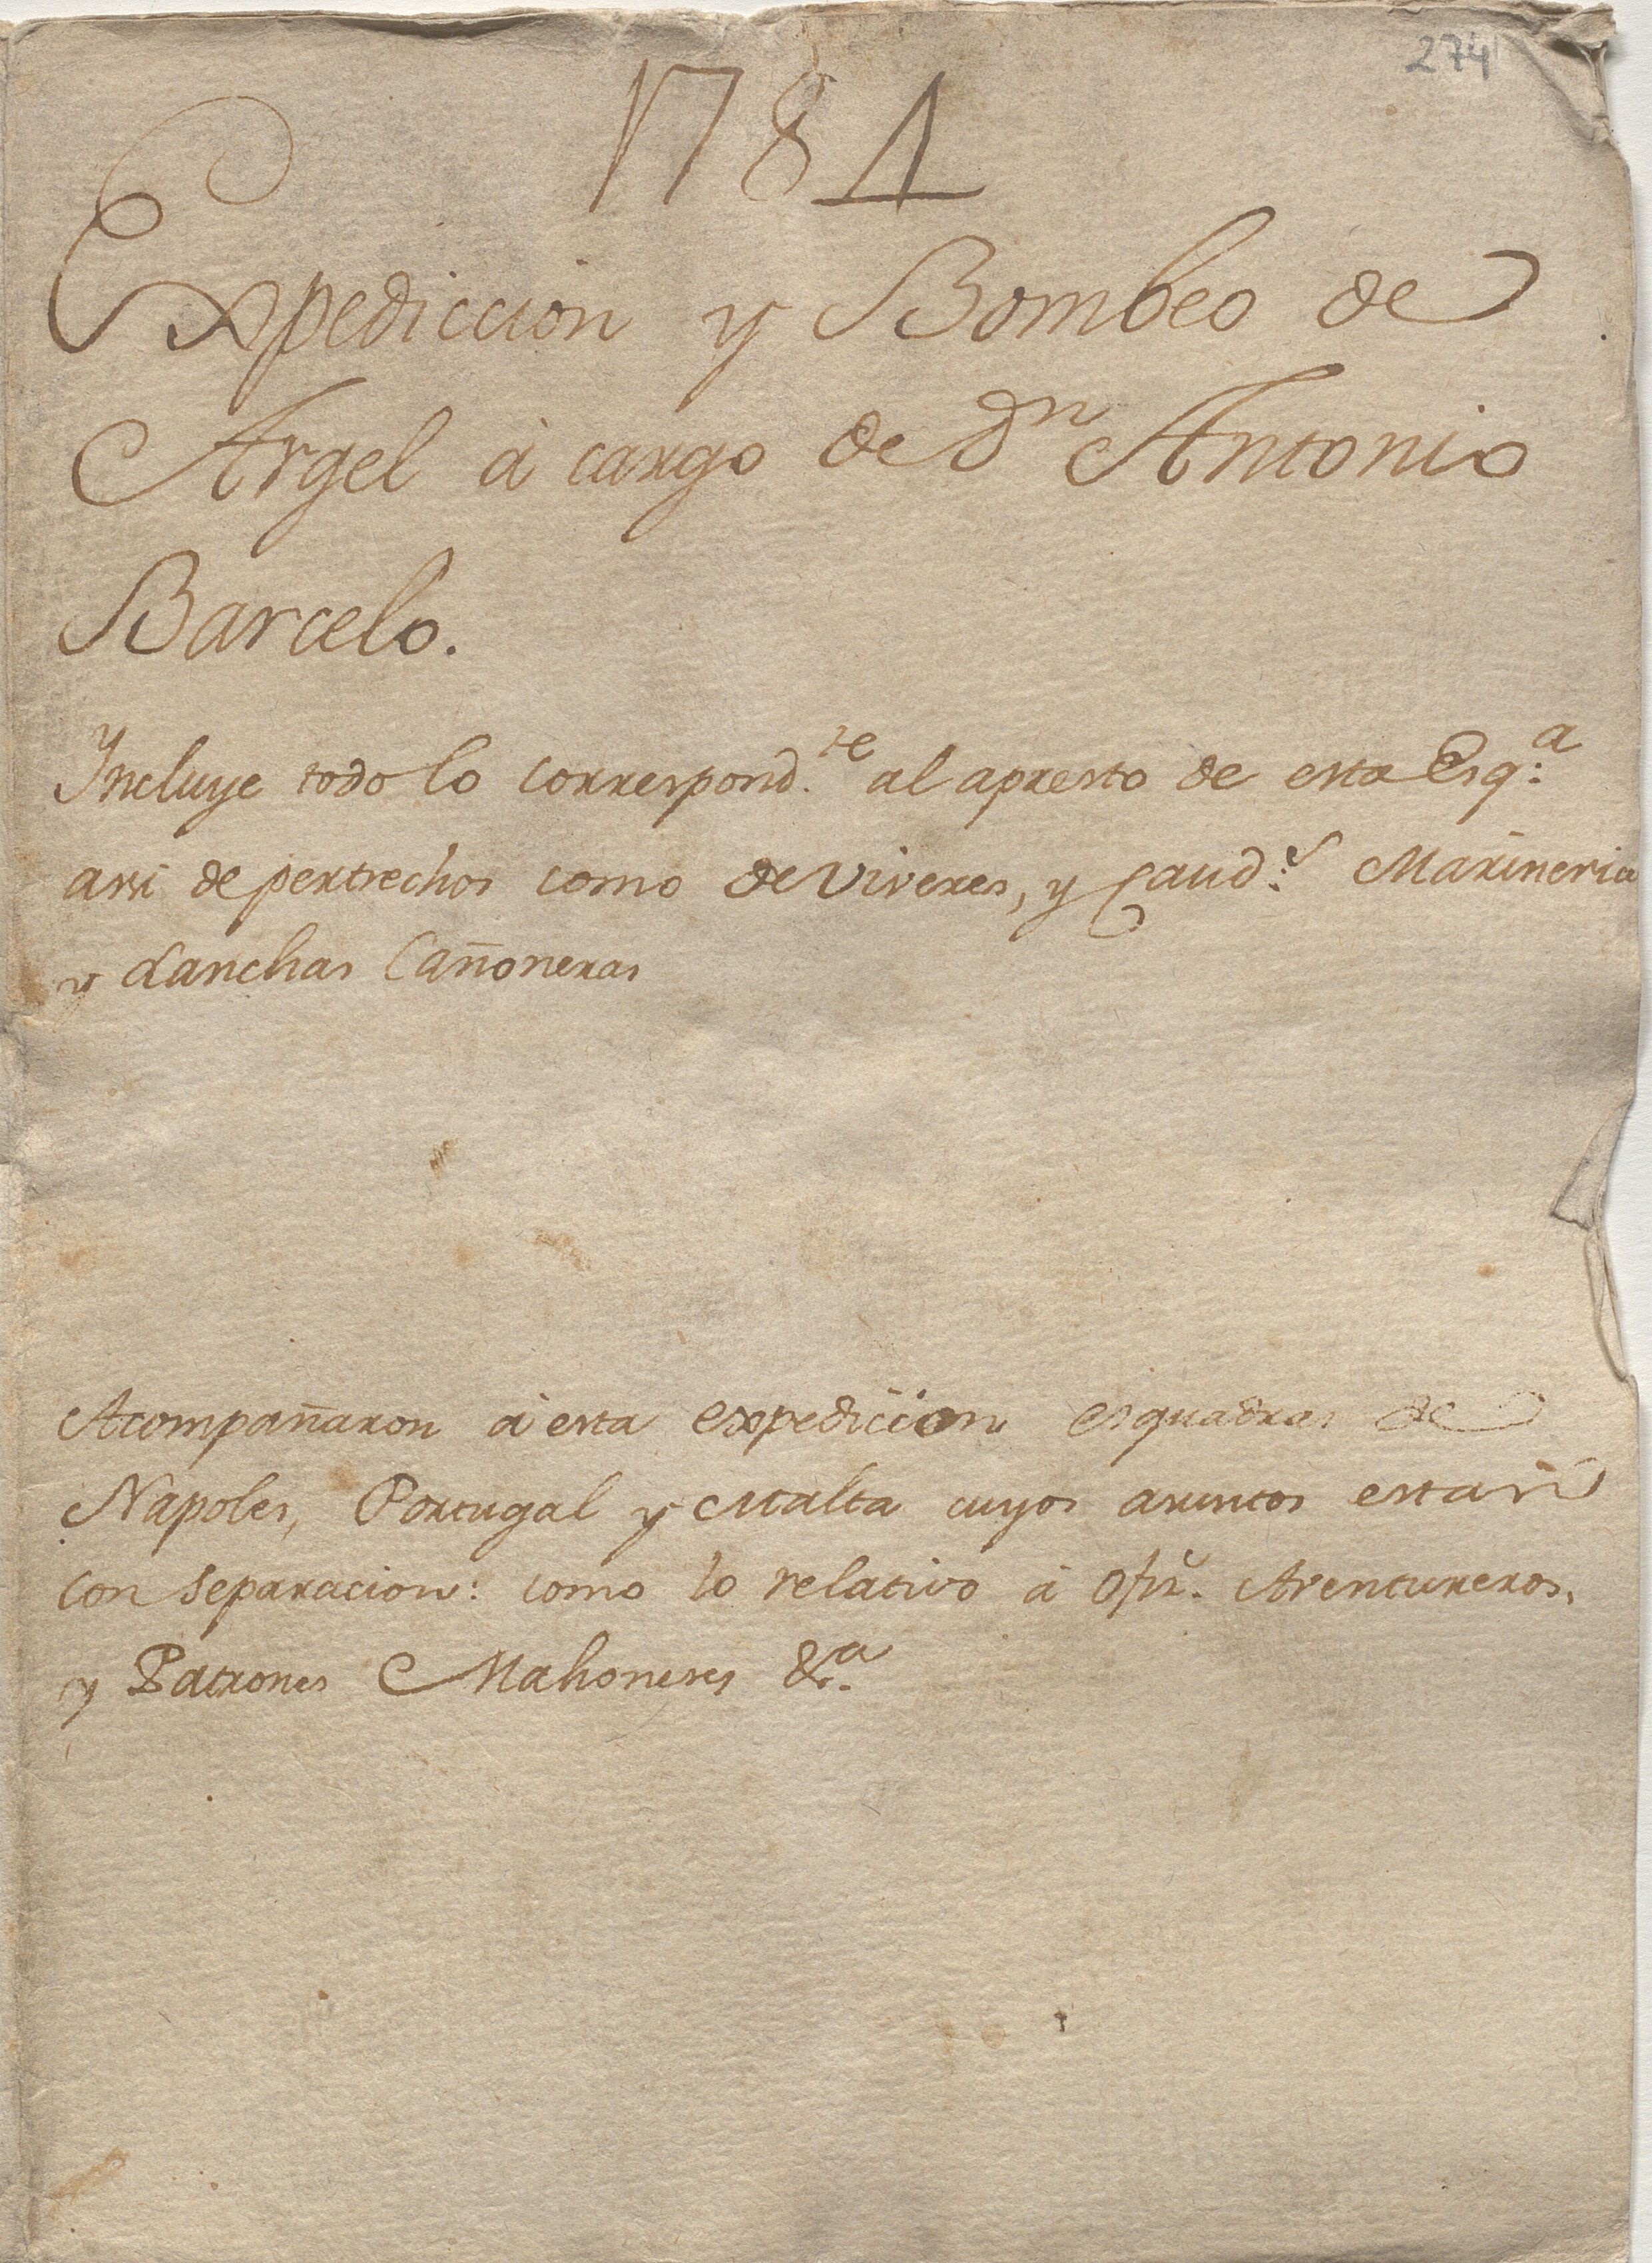 274
1784
Expediccion y Bombeo de
Argel à cargo de Dn Antonio
Barcelo.
Yncluye todo lo correspond.te al apresto de esta Esq.a
asi de pertrechos como de viveres, y Caud.s Marineria
y Lanchas Cañoneras
Acompañaron à esta expedicion esquadras de
Napoles, Portugal y Malta cuyos asuntos estan
con separacion: como lo relativo à Ofiz.s Aventureros,
y Patrones Mahoneses &.a